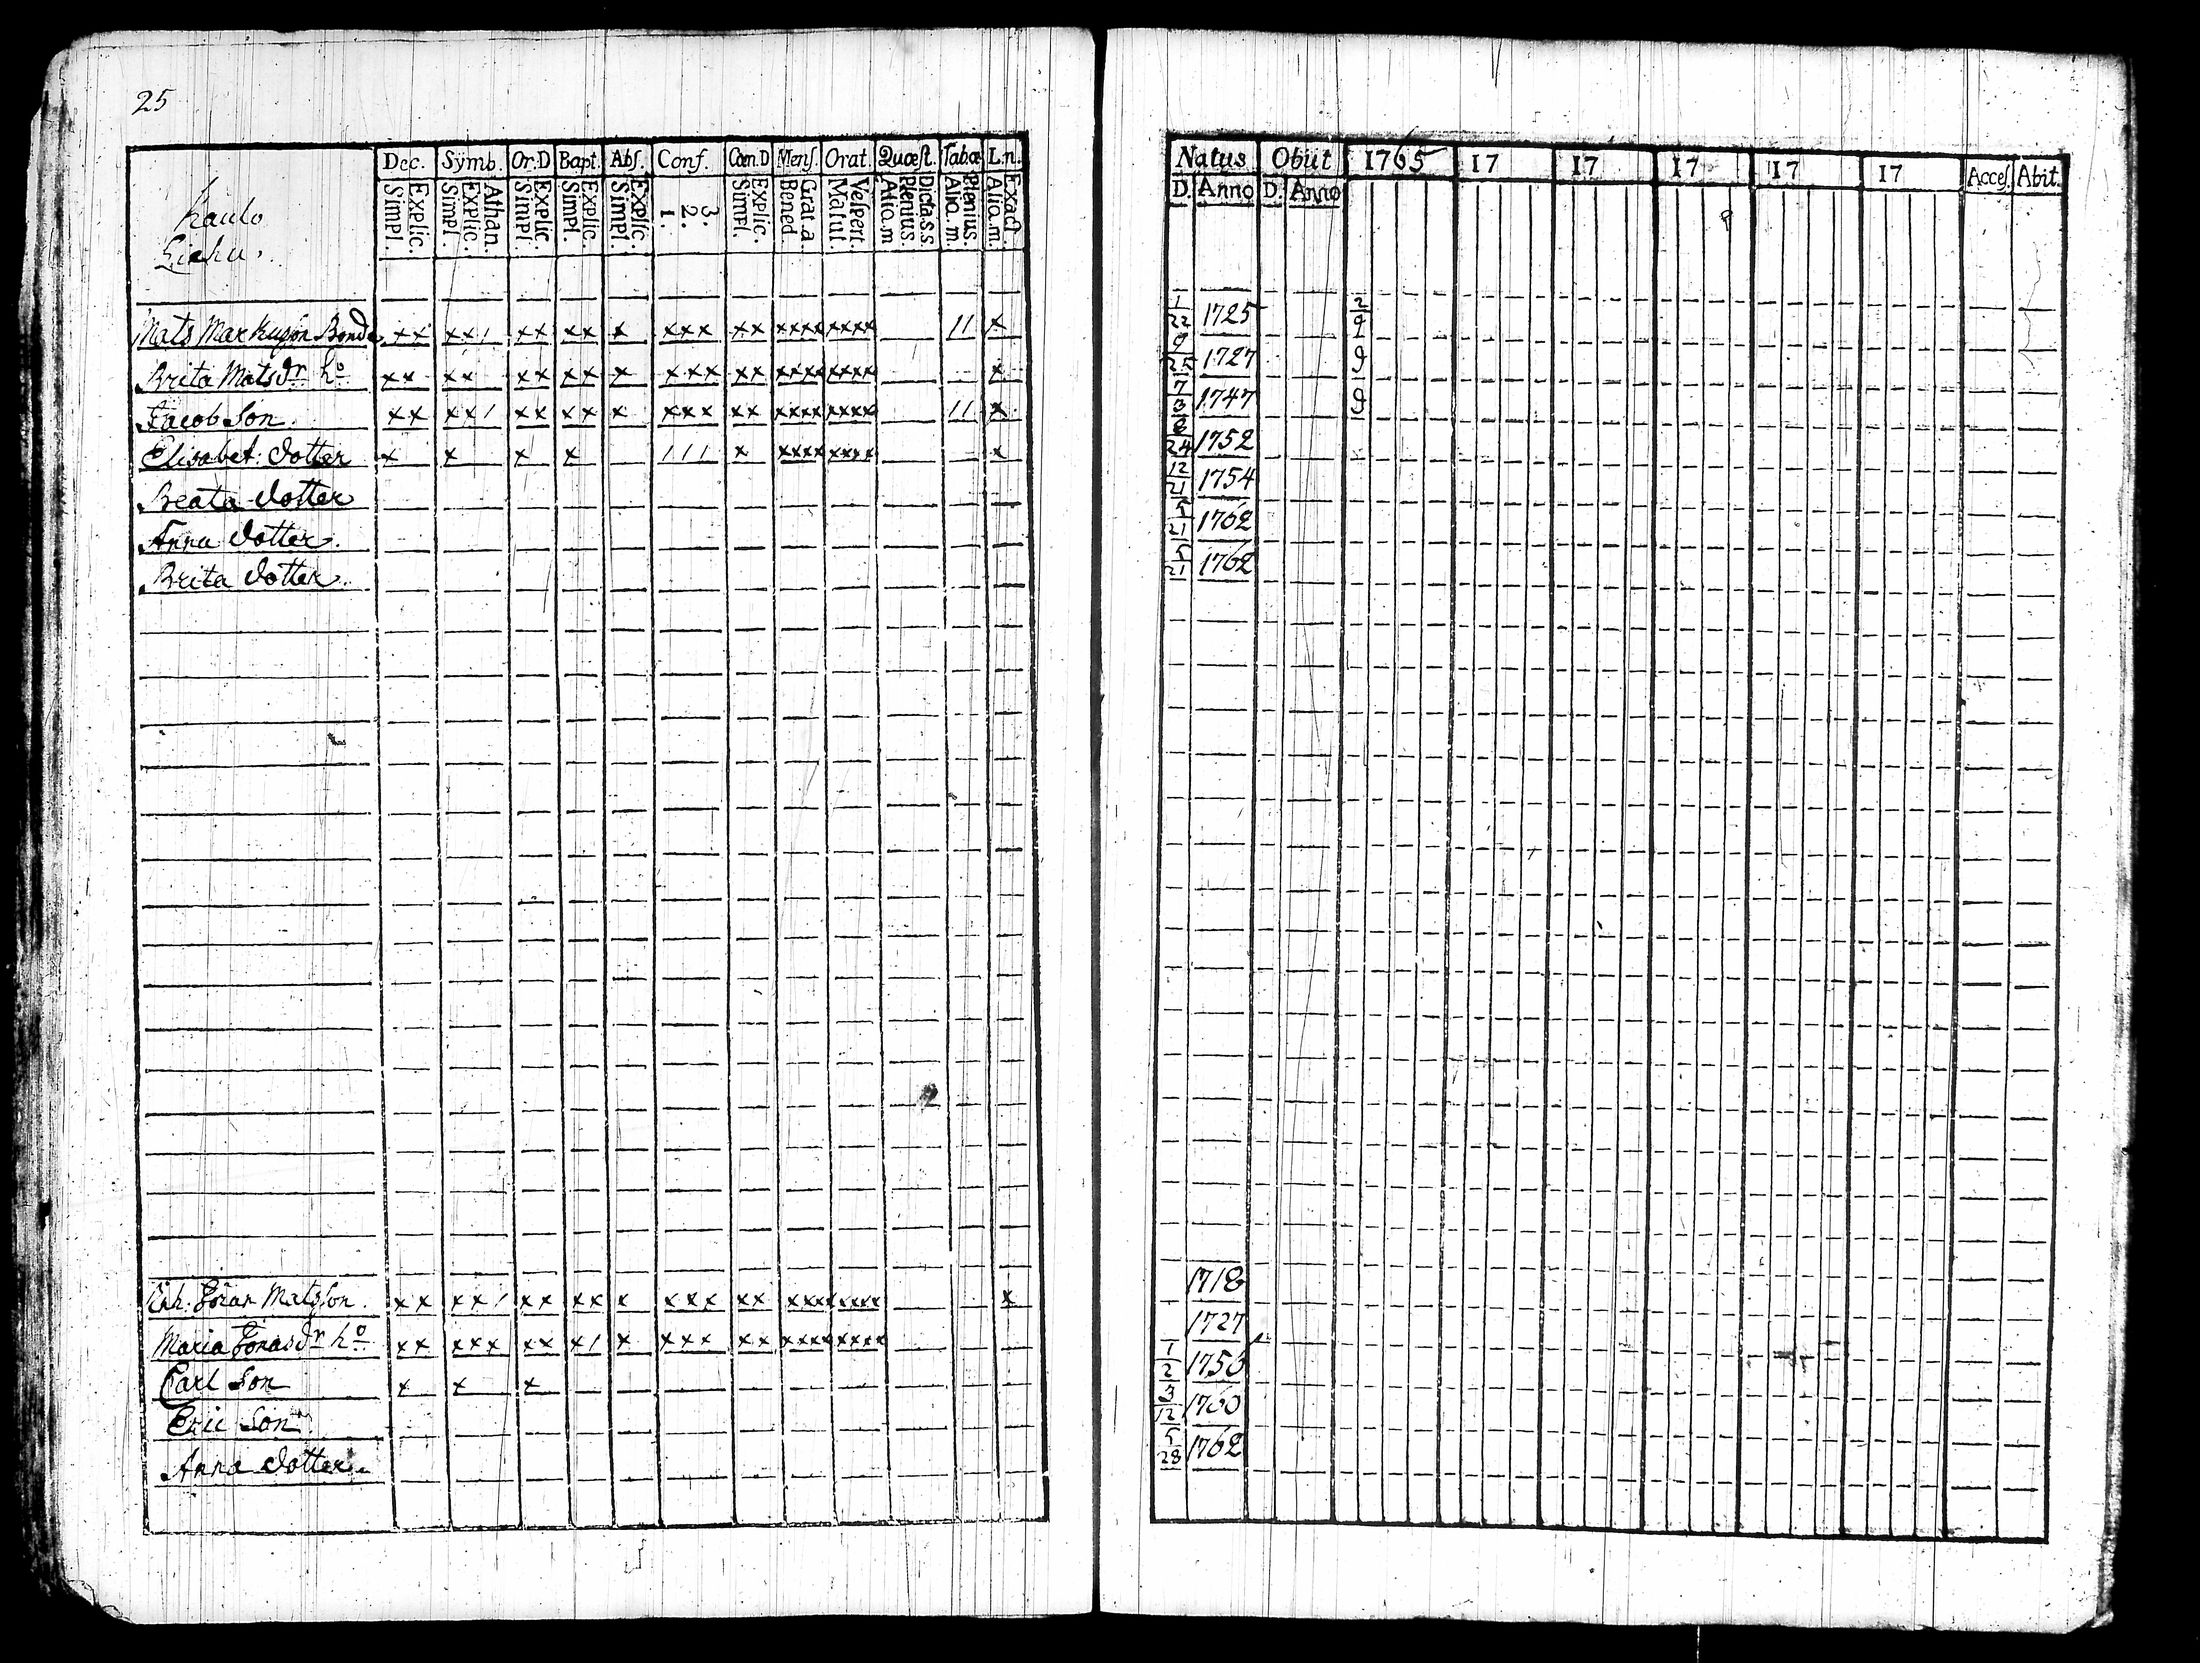 25
Dec. Symb. Or.D Bapt. Abſ. Conf. Cœn.D Menſ. Orat. Quœſt. Tabœ L.n.
Explic. Simpl. Athan. Explic. Simpl. Explic. Simpl. Explic. Simpl. Explic. Simpl. 3. 2. 1. Explic. Simpl. Grat.a. Bened. Veſpert. Matut. Dicta.s.s Plenius. Alio.m Plenius. Alio.m. Exact. Alio.m.
Natus Obiit 1765 17 17 17 17 17 Acceſ. Abit.
D. Anno D. Anno
Kaulo
Mats Markusson Bonde xx xx/ xx xx x xxx xx xxxx xxxx 11 x 1/22 1725 2/9
Brita Matsdr ho xx xx xx xx x xxx xx xxxx xxxx x 9/25 1727 9
Jacob Son. xx xx/ xx xx x xxx xx xxxx xxxx 11 x 7/3 1747 9
Elisabet: dotter x x x x /// x xxxx xxxx x 8/24 1752
Beata dotter 12/21 1754
Anna dotter. 5/21 1762
Brita dotter. 5/21 1762
Inh: Göran Matsson. xx xx/ xx xx x xxx xx xxxx xxxx x 1718
Maria Jonasdr ho xx xxx xx x/ x xxx xx xxxx xxxx 1727
Carl Son x x x 1/2 1756
Eric Son. 3/12 1760
Anna dotter. 5/28 1762